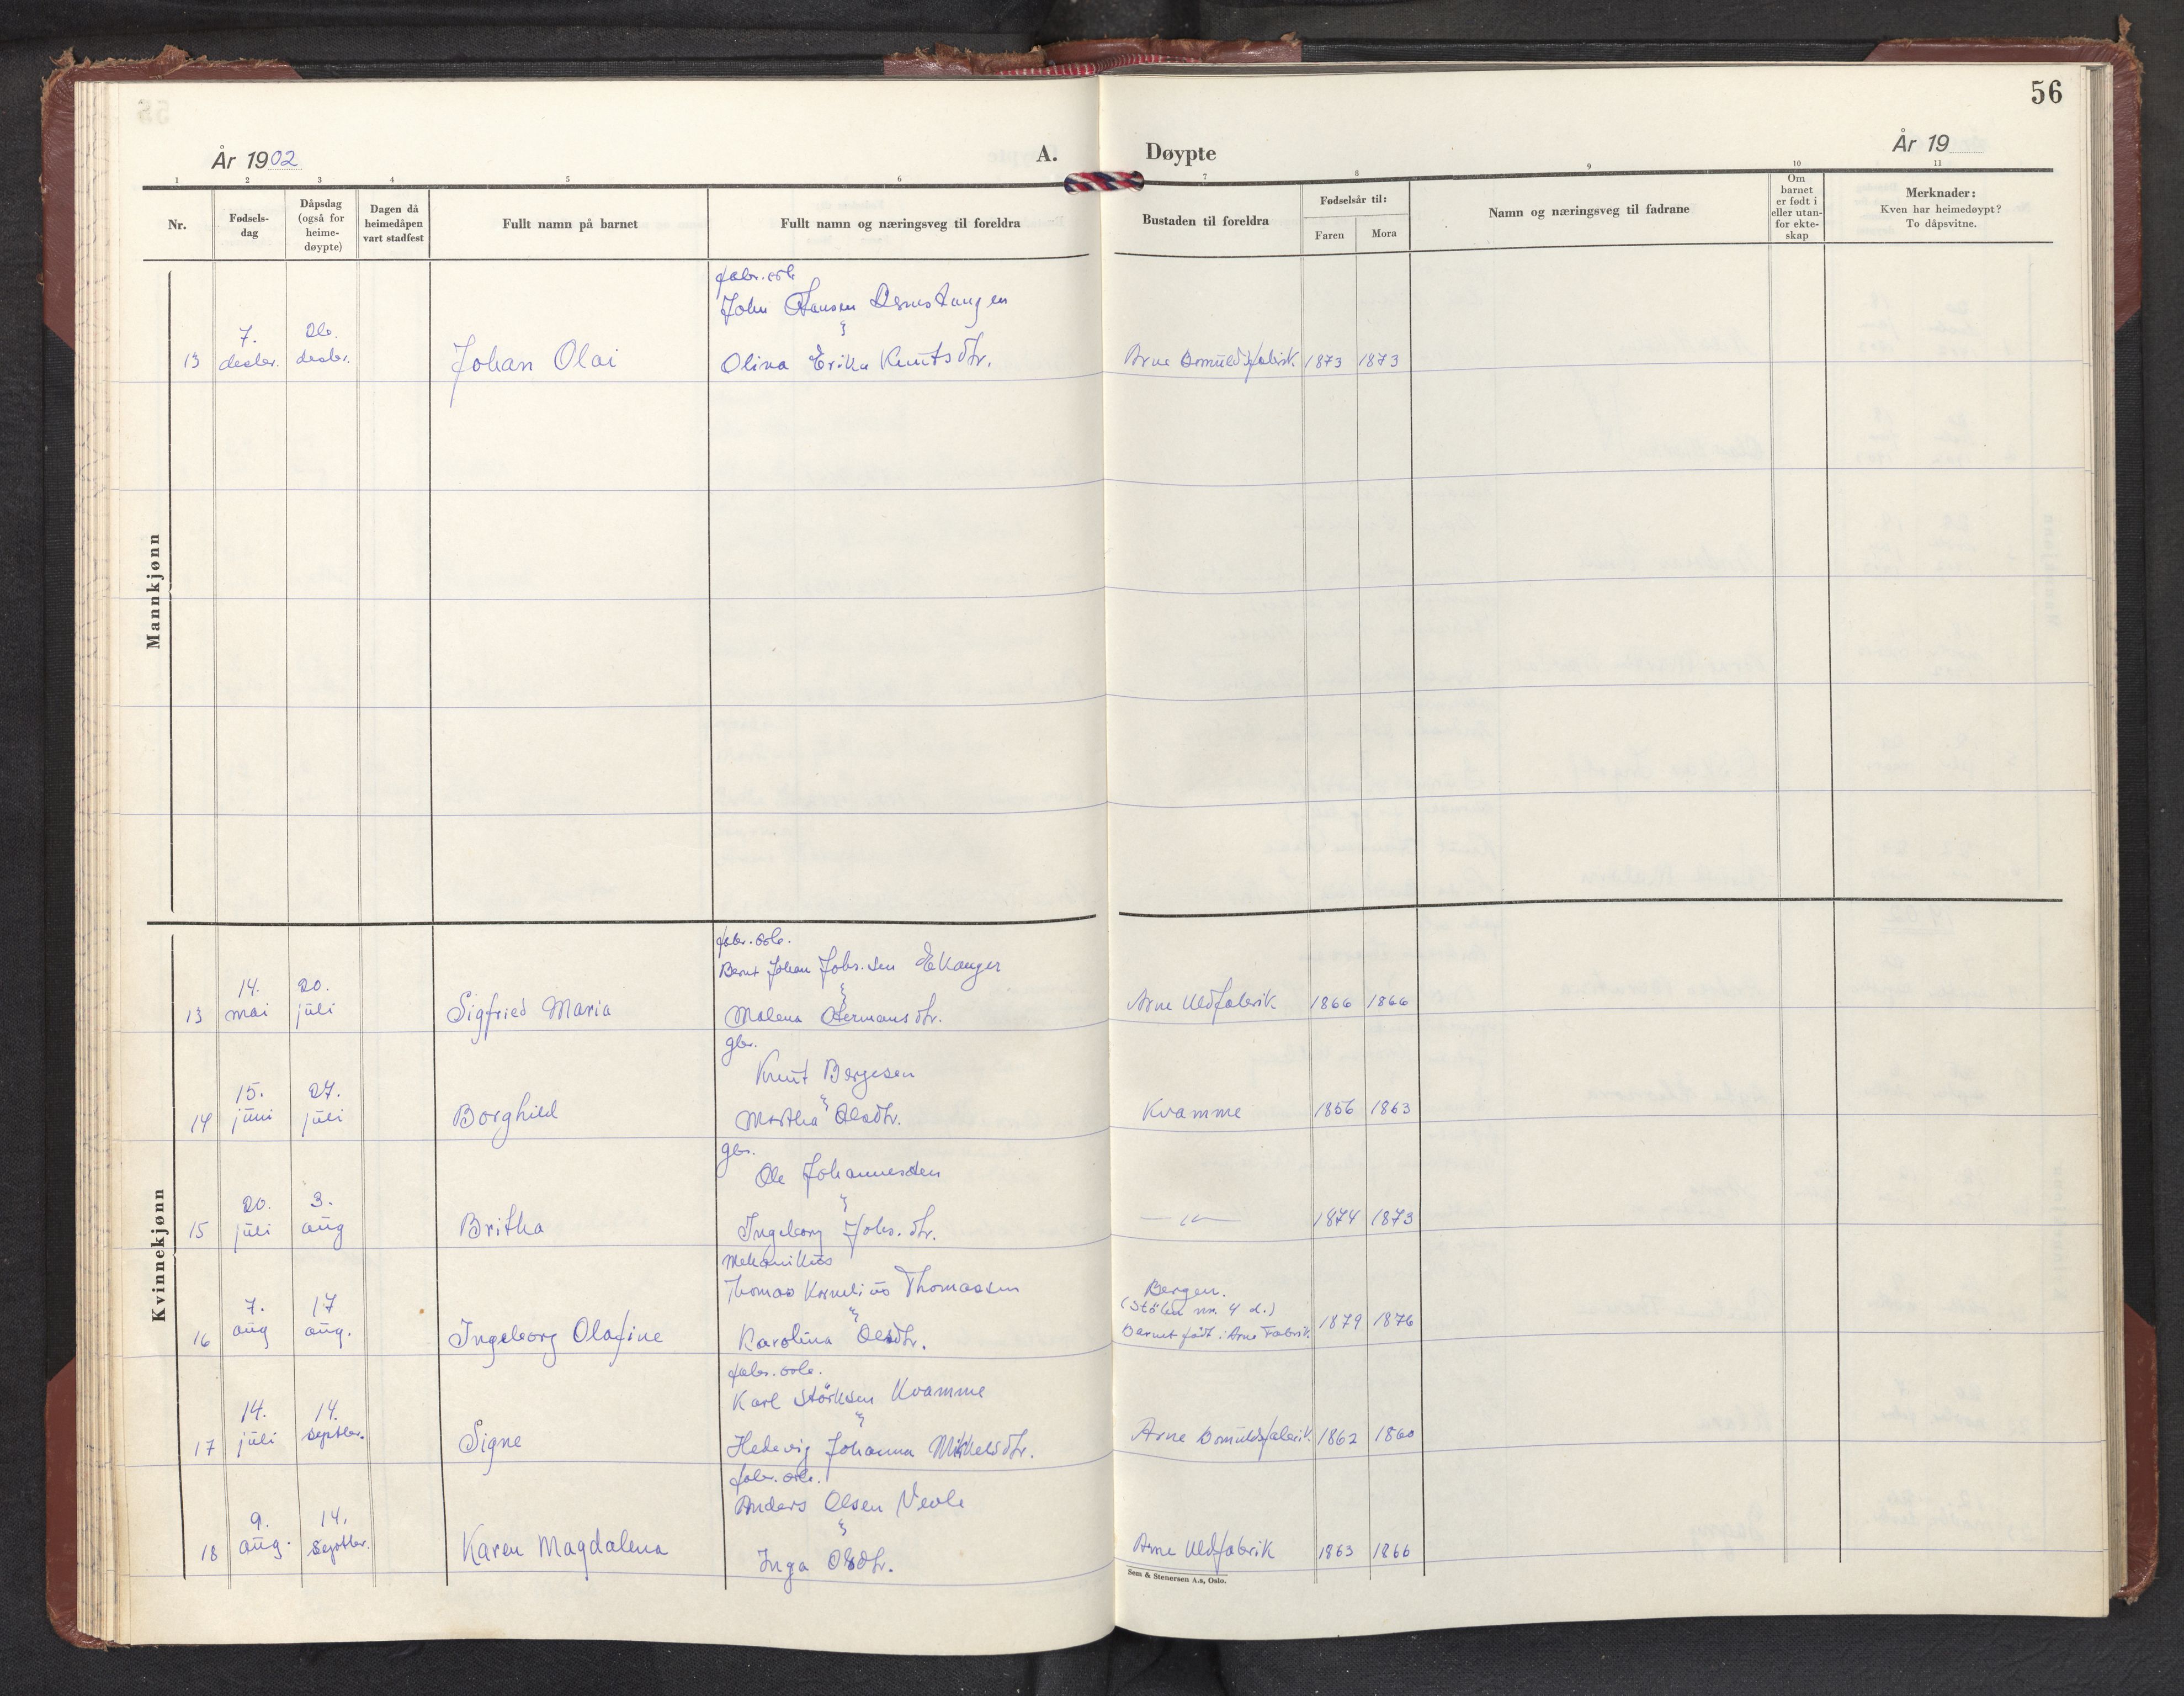 56
År 1902
A.
Døypte
År 19
1 2 3 4 5 6 7 8 9 10 11
Nr.
Fødsels-
dag
Dåpsdag
(også for
heime-
døypte)
Dagen då
heimedåpen
vart stadfest
Fullt namn på barnet
Fullt namn og næringsveg til foreldra
Bustaden til foreldra
Fødselsår til:
Faren
Mora
Namn og næringsveg til fadrane
Om
barnet
er født i
eller utan-
for ekte-
skap
Merknader:
Kven har heimedøypt?
To dåpsvitne.
Mannkjønn
fabr.arb.
John Hansen
7. 26.
13 desbr. desbr. Johan Olai Olina Erika Knutsdtr. Arne Bomuldsfabrik. 1873 1873
Kvinnekjønn
fabr.arb.
Bernt Johan Johs.sen Ekanger
&
14. 20.
13 mai juli Sigfried Maria Malena Hermansdtr. Arne Uldfabrik 1866 1866
gbr.
Knut Børgesen
&
15. 27.
14 juni juli Borghild Martha Olsdtr. Kvamme 1856 1863
gbr.
Ole Johannessen
&
20. 3.
15 juli aug Britha Ingeborg Johs.dtr. —"— 1874 1873
Mekanikus
Thomas Kornelius Thomassen
&
Bergen.
(Stølen nr. 4 d.)
7. 17
16 aug aug. Ingeborg Olafine Karolina Olsdtr. Barnet født i Arne Fabrik. 1879 1876
fabr.arb.
Karl Störksen Kvamme
&
14. 14.
17 juli septbr. Signe Hedevig Johanna Mikkelsdtr. Arne Bomuldsfabrik. 1862 1860
fabr.arb.
Anders Olsen
&
9. 14.
18 aug. septbr. Karen Magdalena Inga Olsdtr. Arne Uldfabrik 1863 1866
Sem & Stenersen A.s, Oslo.